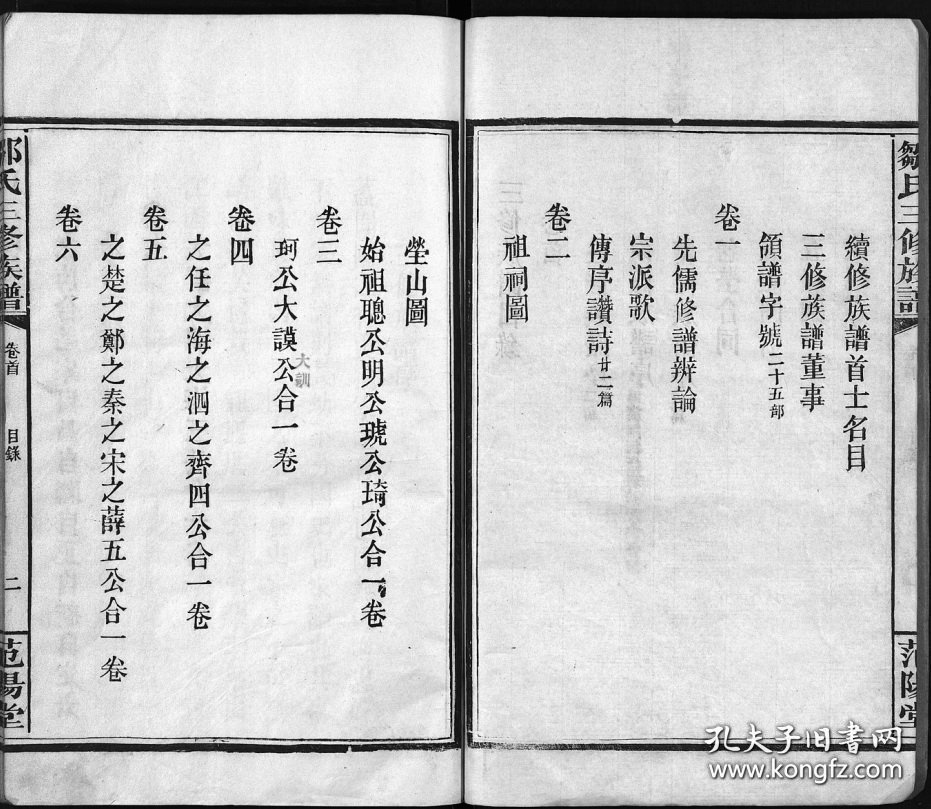 鄒氏三修族譜
范陽堂
續修族譜首士名目
三修族譜董事
領譜字號二十五部
卷一
先儒修譜辨論
宗派歌
傳序讚詩廿二篇
卷二
祖祠圖
塋山圖
始祖聰公明公琥公琦公合一卷
卷三
珂公大謨公合一卷
大訓
卷四
之任之海之泗之齊四公合一卷
卷五
之楚之鄭之秦之宋之薛五公合一卷
卷六
鄒氏三修族譜
卷首
目錄
二
范陽堂
孔夫子旧书网
www.kongfz.com